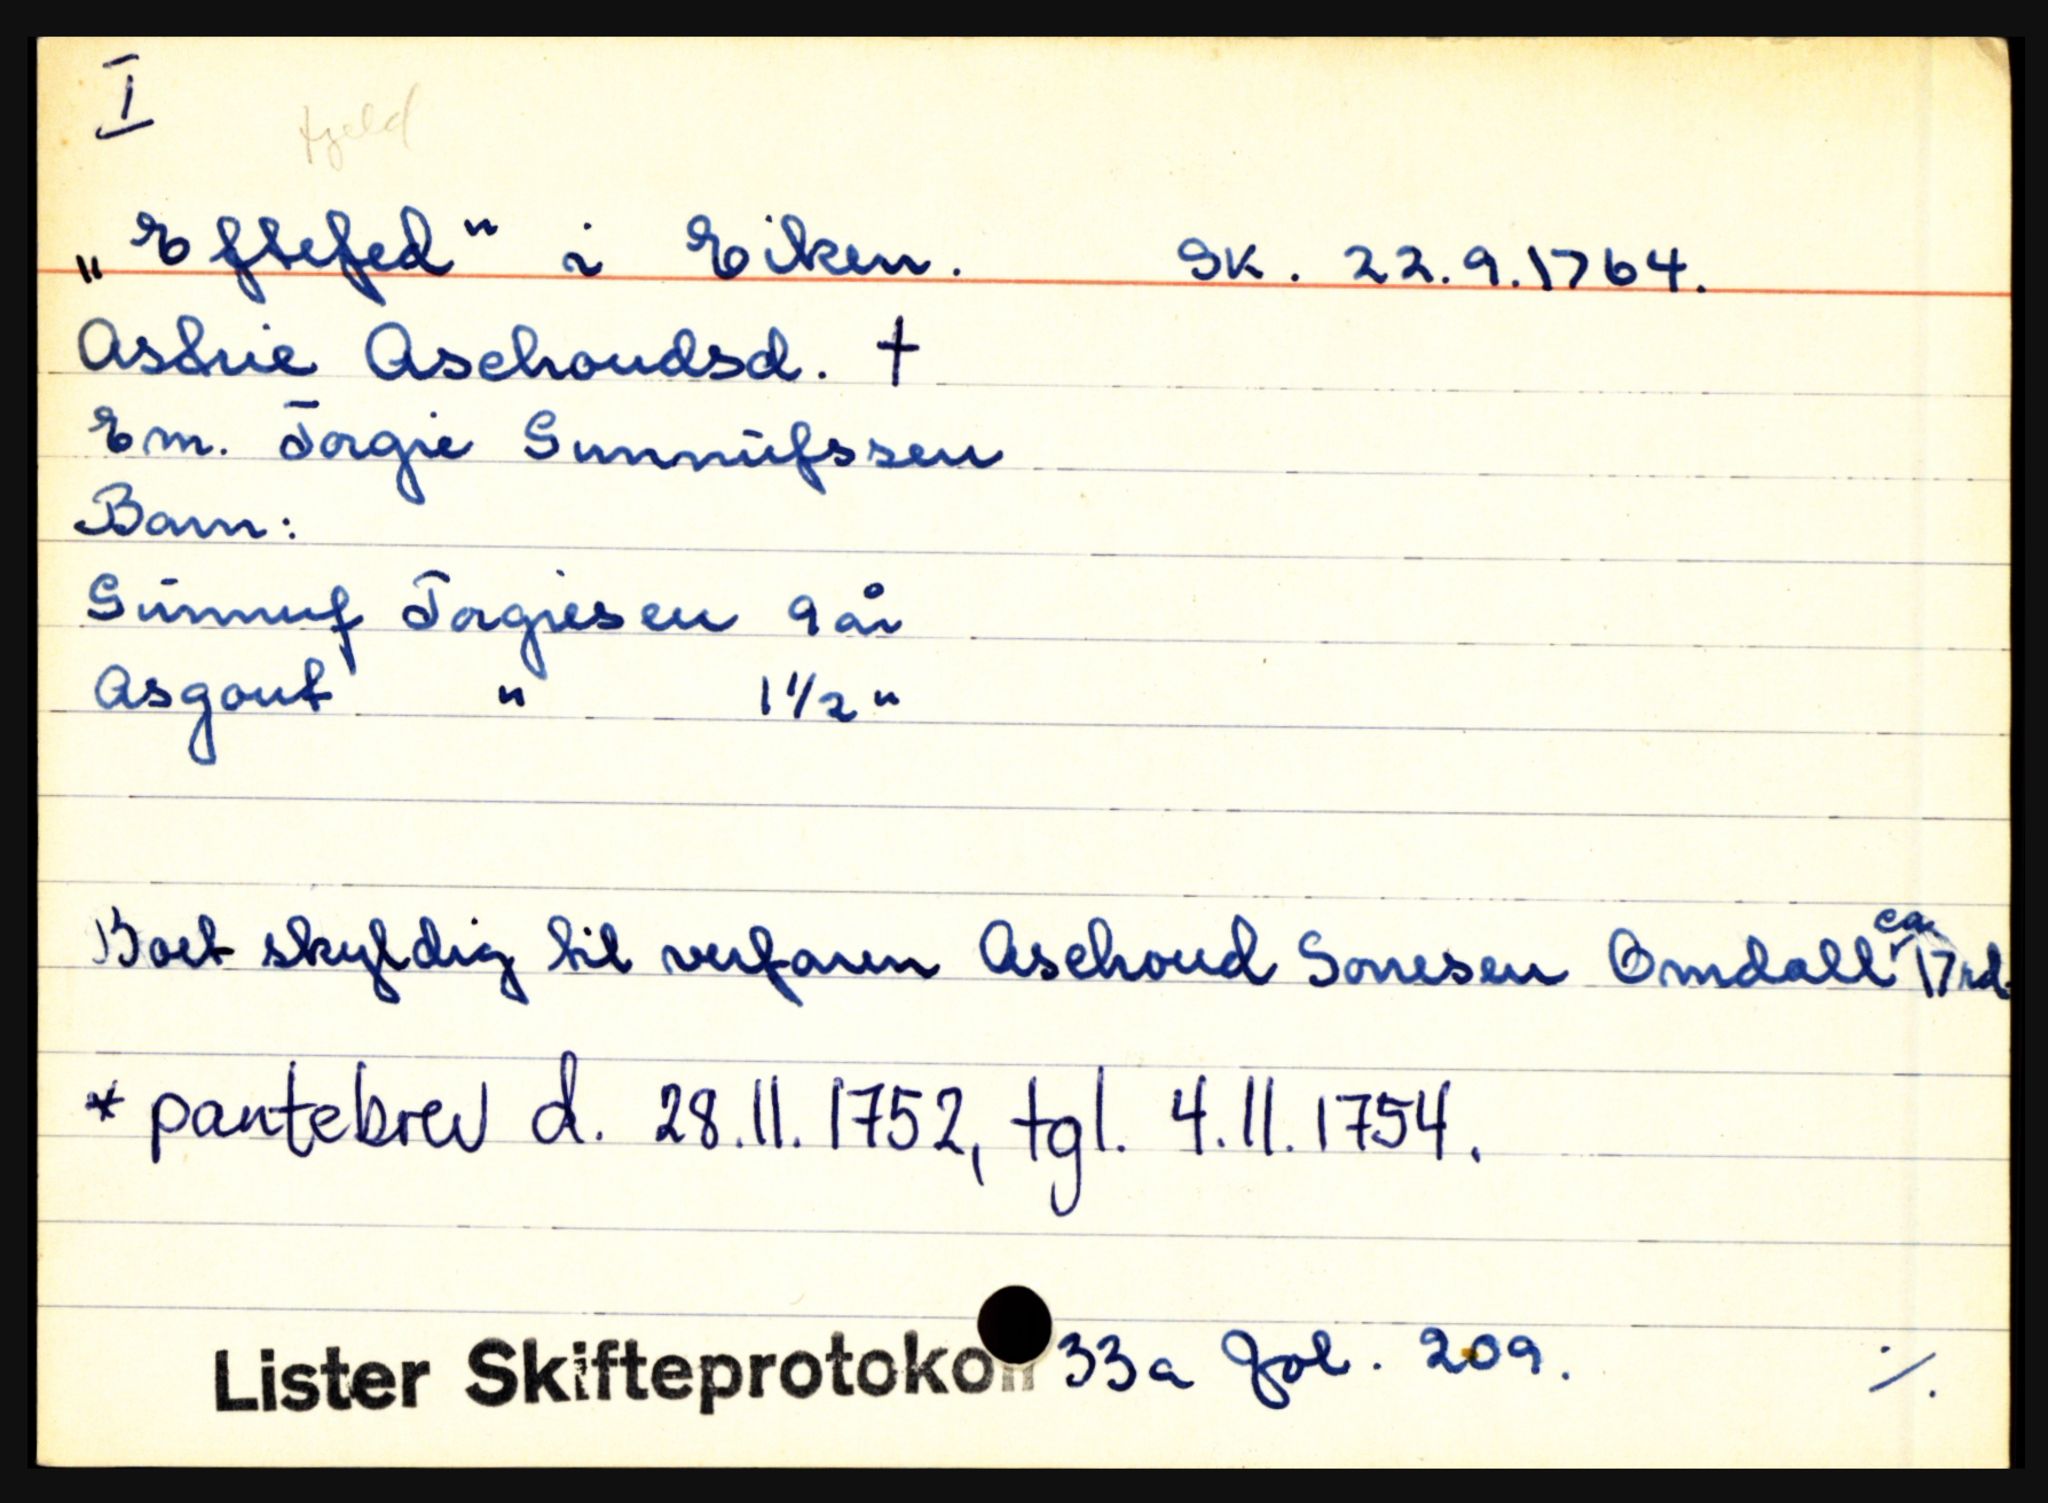 I
fjeld
„Eftefed" i Eiken. Sk. 22.9.1764.
Astrie Aschoudsd. †
Em. Torgie Gunnufssen
Barn:
Gunnuf Torgiesen 9 år
Asgout " 1 1/2 "
Boet skyldig til verfaren Aschoud Sonesen Omdall ca. 17 rd.
* pantebrev d. 28.11.1752, tgl. 4.11.1754.
Lister Skifteprotokoll 33a fol. 209.
./.